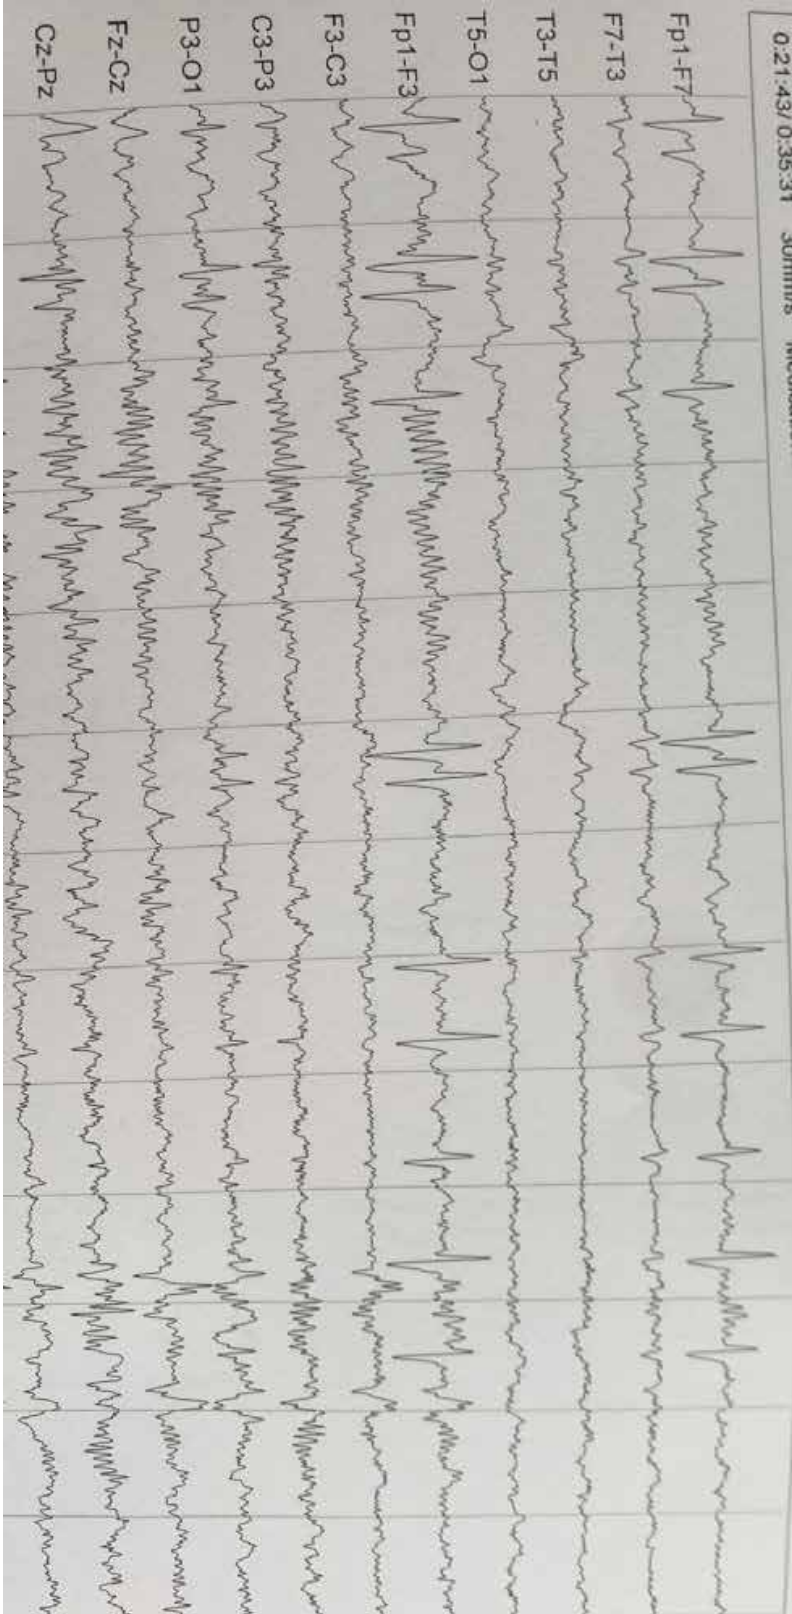 0:21:43/ 0:35:31 30mm/s
Fp1-F7
F7-T3
T3-T5
T5-O1
Fp1-F3
F3-C3
C3-P3
P3-O1
Fz-Cz
Cz-Pz